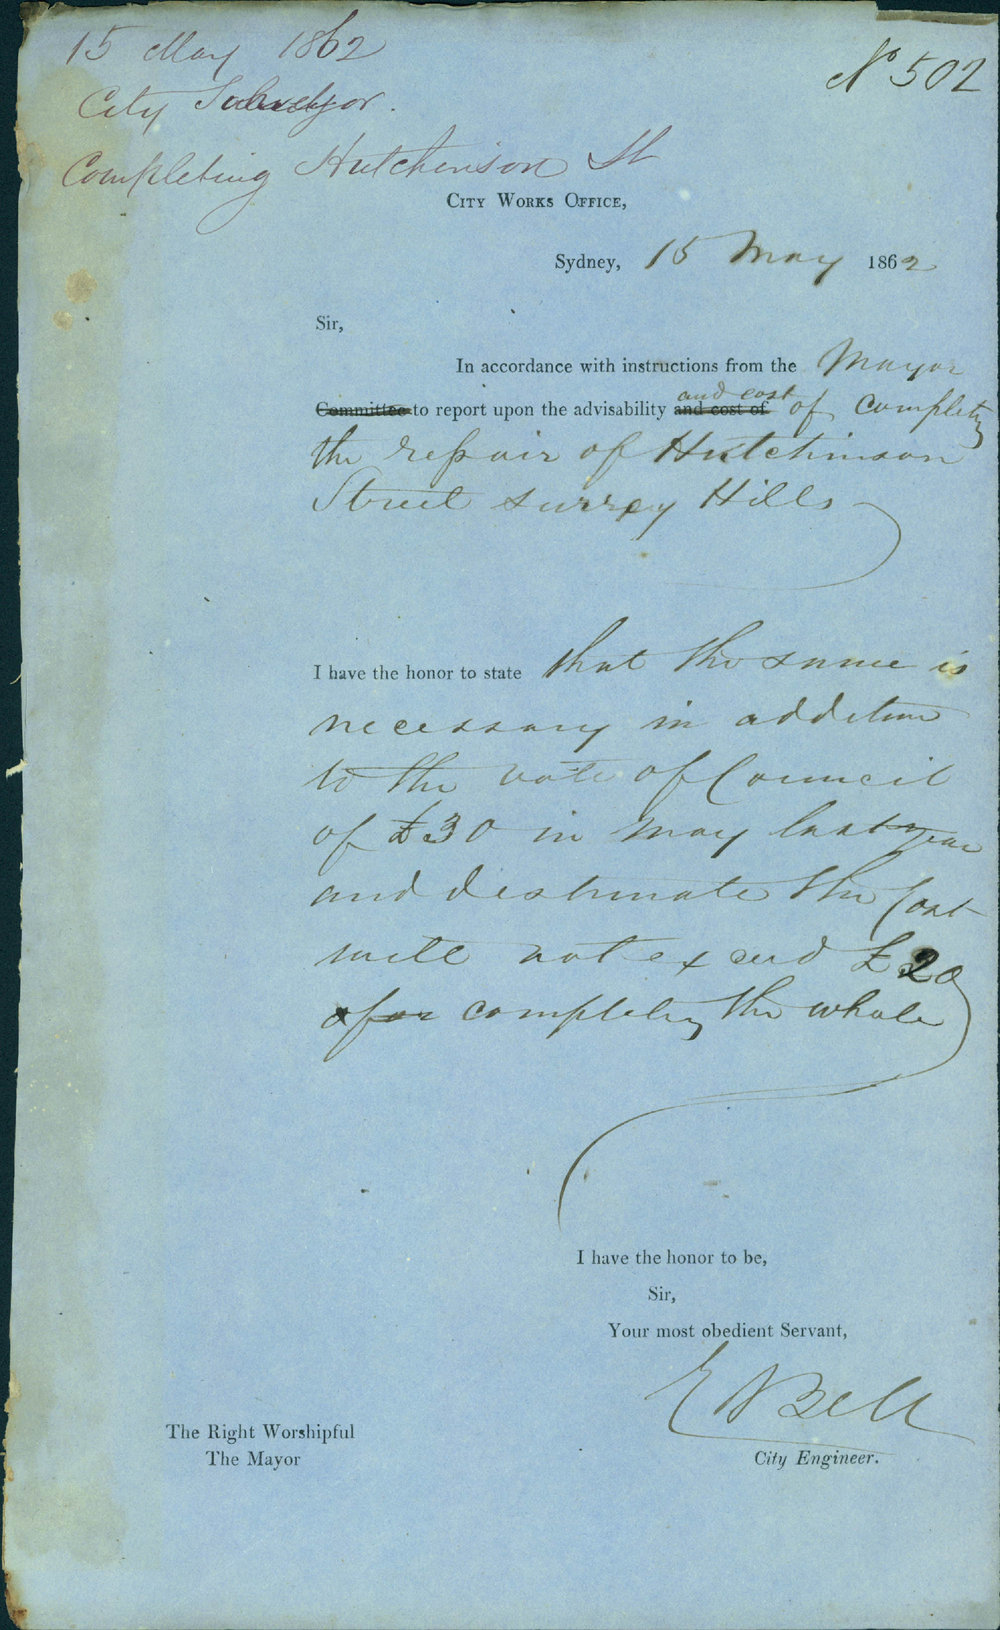 15 May 1862
No 502
City Surveyor.
Completing Hutchinson St
CITY WORKS OFFICE,
Sydney, 15 May 1862
Sir,
In accordance with instructions from the Mayor
and cost
Committee to report upon the advisability and cost of of completing
the repair of Hutchinson
Street Surrey Hills
I have the honor to state that the same is
necessary in addition
to the vote of Council
of £30 in May last year
and I estimate the cost
will not exceed £20
for completing the whole
I have the honor to be,
Sir,
Your most obedient Servant,
E Bell
The Right Worshipful
The Mayor
City Engineer.